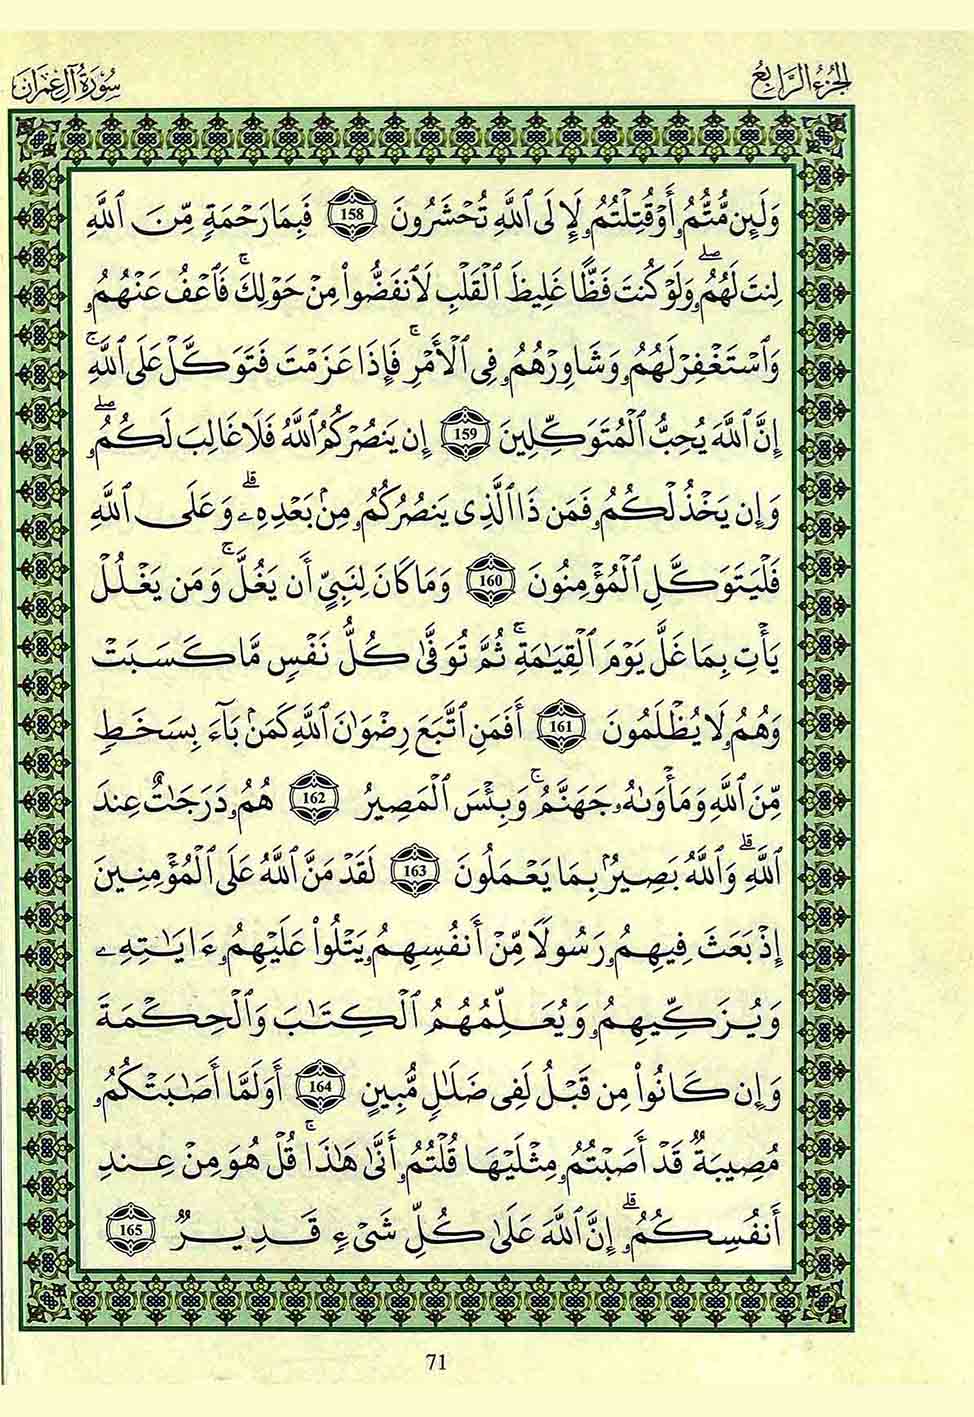 الجزء الرابع
سورة آل عمران
وَلَئِن مُّتُّمُۥٓ أَوْ قُتِلْتُمُۥ لَإِلَى ٱللَّهِ تُحْشَرُونَ 158 فَبِمَا رَحْمَةٍ مِّنَ ٱللَّهِ
لِنتَ لَهُمُۥ ۖ وَلَوْ كُنتَ فَظًّا غَلِيظَ ٱلْقَلْبِ لَٱنفَضُّوا۟ مِنْ حَوْلِكَ ۚ فَٱعْفُ عَنْهُمُۥ
وَٱسْتَغْفِرْ لَهُمُۥ وَشَاوِرْهُمُۥ فِى ٱلْأَمْرِ ۚ فَإِذَا عَزَمْتَ فَتَوَكَّلْ عَلَى ٱللَّهِ ۚ
إِنَّ ٱللَّهَ يُحِبُّ ٱلْمُتَوَكِّلِينَ 159 إِن يَنصُرْكُمُ ٱللَّهُ فَلَا غَالِبَ لَكُمُۥ ۖ
وَإِن يَخْذُلْكُمُۥ فَمَن ذَا ٱلَّذِى يَنصُرُكُمُۥ مِنۢ بَعْدِهِۦ ۗ وَعَلَى ٱللَّهِ
فَلْيَتَوَكَّلِ ٱلْمُؤْمِنُونَ 160 وَمَا كَانَ لِنَبِىٍّ أَن يَغُلَّ ۚ وَمَن يَغْلُلْ
يَأْتِ بِمَا غَلَّ يَوْمَ ٱلْقِيَٰمَةِ ۚ ثُمَّ تُوَفَّىٰ كُلُّ نَفْسٍ مَّا كَسَبَتْ
وَهُمُۥ لَا يُظْلَمُونَ 161 أَفَمَنِ ٱتَّبَعَ رِضْوَٰنَ ٱللَّهِ كَمَنۢ بَآءَ بِسَخَطٍ
مِّنَ ٱللَّهِ وَمَأْوَىٰهُۥ جَهَنَّمُ ۚ وَبِئْسَ ٱلْمَصِيرُ 162 هُمُۥ دَرَجَٰتٌ عِندَ
ٱللَّهِ ۗ وَٱللَّهُ بَصِيرٌۢ بِمَا يَعْمَلُونَ 163 لَقَدْ مَنَّ ٱللَّهُ عَلَى ٱلْمُؤْمِنِينَ
إِذْ بَعَثَ فِيهِمُۥ رَسُولًا مِّنْ أَنفُسِهِمُۥ يَتْلُوا۟ عَلَيْهِمُۥٓ ءَايَٰتِهِۦ
وَيُزَكِّيهِمُۥ وَيُعَلِّمُهُمُ ٱلْكِتَٰبَ وَٱلْحِكْمَةَ
وَإِن كَانُوا۟ مِن قَبْلُ لَفِى ضَلَٰلٍ مُّبِينٍ 164 أَوَلَمَّآ أَصَٰبَتْكُمُۥ
مُصِيبَةٌ قَدْ أَصَبْتُمُۥ مِثْلَيْهَا قُلْتُمُۥٓ أَنَّىٰ هَٰذَا ۖ قُلْ هُوَ مِنْ عِندِ
أَنفُسِكُمُۥٓ ۗ إِنَّ ٱللَّهَ عَلَىٰ كُلِّ شَىْءٍ قَدِيرٌ 165
71